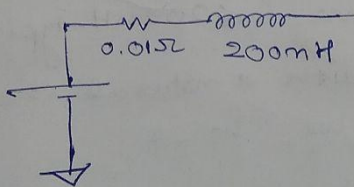 0.01Ω 200mH